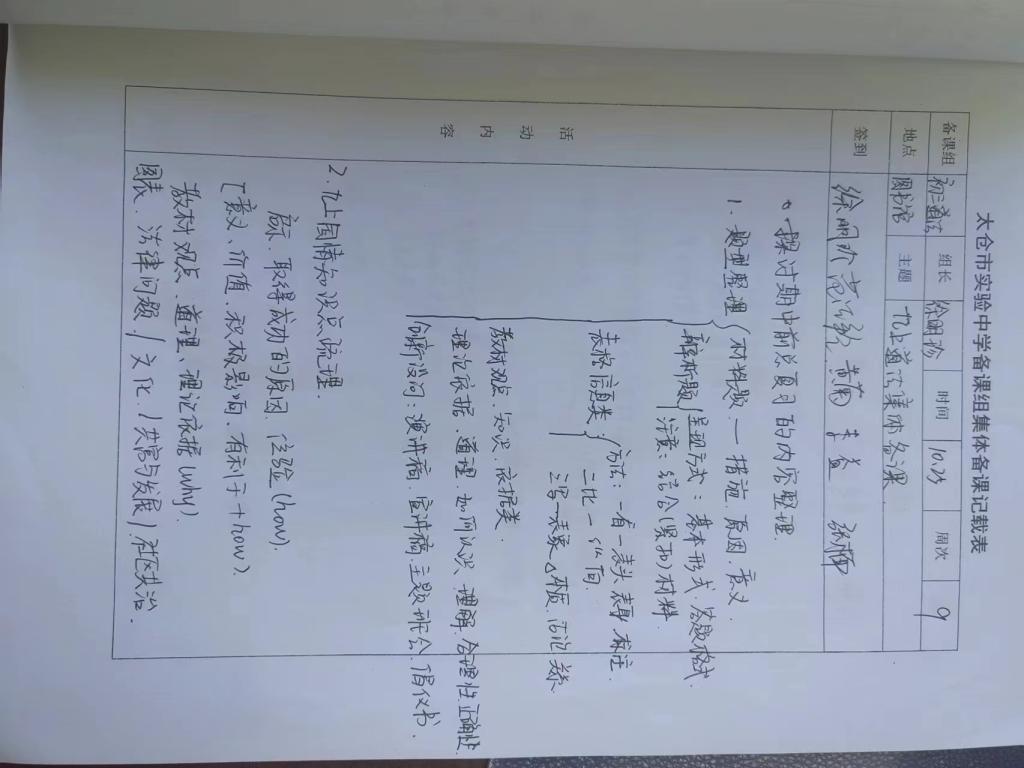 太仓市实验中学备课组集体备课记载表
备课组 初三道法 组长 徐明珍 时间 10.25 周次 9
地点 图书馆 主题 九上道法集体备课
签到 徐明珍
活动内容
一、探讨期中前总复习的内容整理.
1. 题型整理
材料题 — 措施、原因、意义.
辨析题 呈现方式:基本形式、答题格式.
注意:结合(紧扣)材料
表格信息类 方法:一看—表头、表身、标注.
二比—纵、横向
三写—表象、本质、结论、关系
教材观点、知识、依据类.
理论依据、道理、如何认识、理解、合理性、正确性
创新设问:演讲稿、宣讲稿、主题班会、倡仪书.
2. 九上国情知识点梳理.
启示、取得成功的原因、经验 (how).
[意义、价值、积极影响、有利于 + how).
教材观点、道理、理论依据 (why).
图表、法律问题 / 文化 / 共富与发展 / 社区共治.